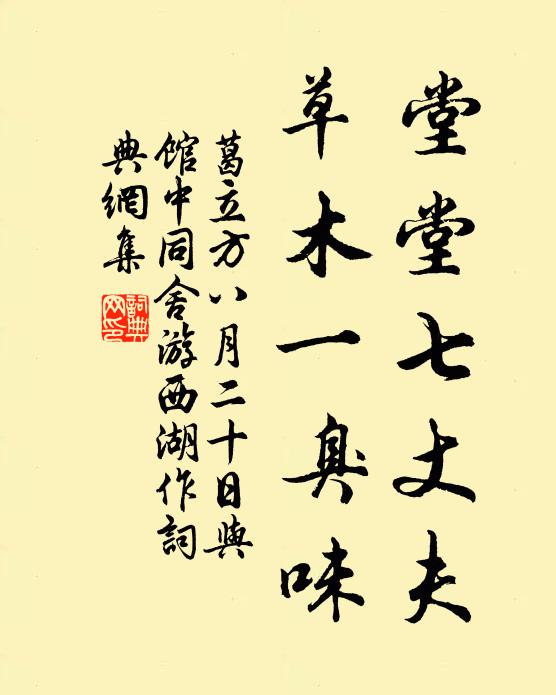 堂堂七丈夫
草木一臭味
葛立方八月二十日與
館中同舍游西湖作詞
典網集
詞典网印